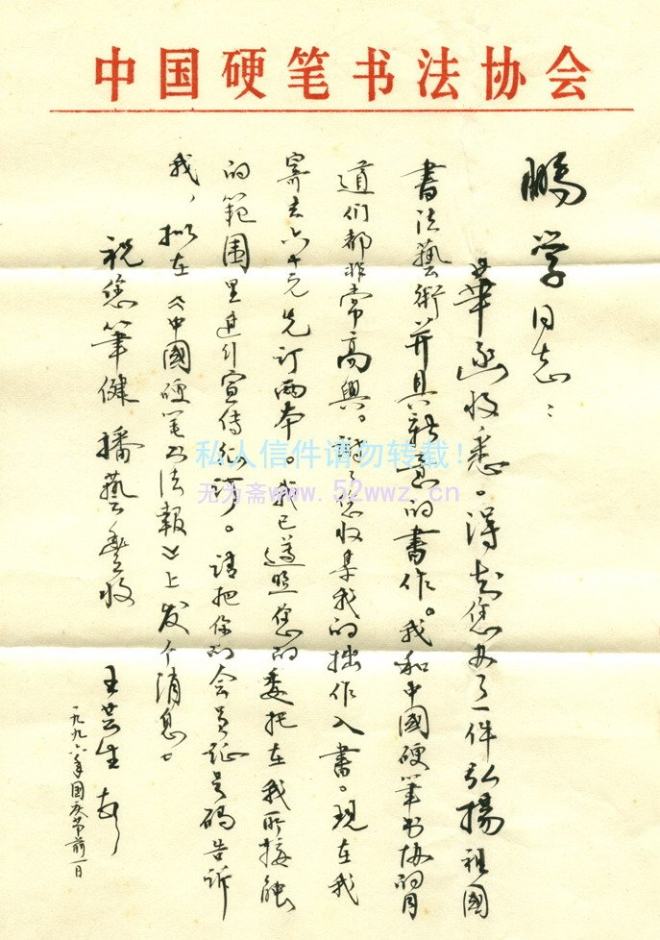 中国硬笔书法协会
鹏学同志：
華函收悉。得知您办了一件弘揚祖國
書法藝術并具新意的書作。我和中國硬筆书协的同
道们都非常高興。謝谢您收集我的拙作入書。现在我
寄去六十元先订两本。我已遵照您的委托在我所接触
的範围里进行宣传征订。请把你的会员证号码告诉
我，拟在《中國硬笔书法報》上发个消息。
祝您筆健 播藝豐收
王芸生
一九九六年國庆节前一日
私人信件请勿转载！
无为斋www.52wwz.cn